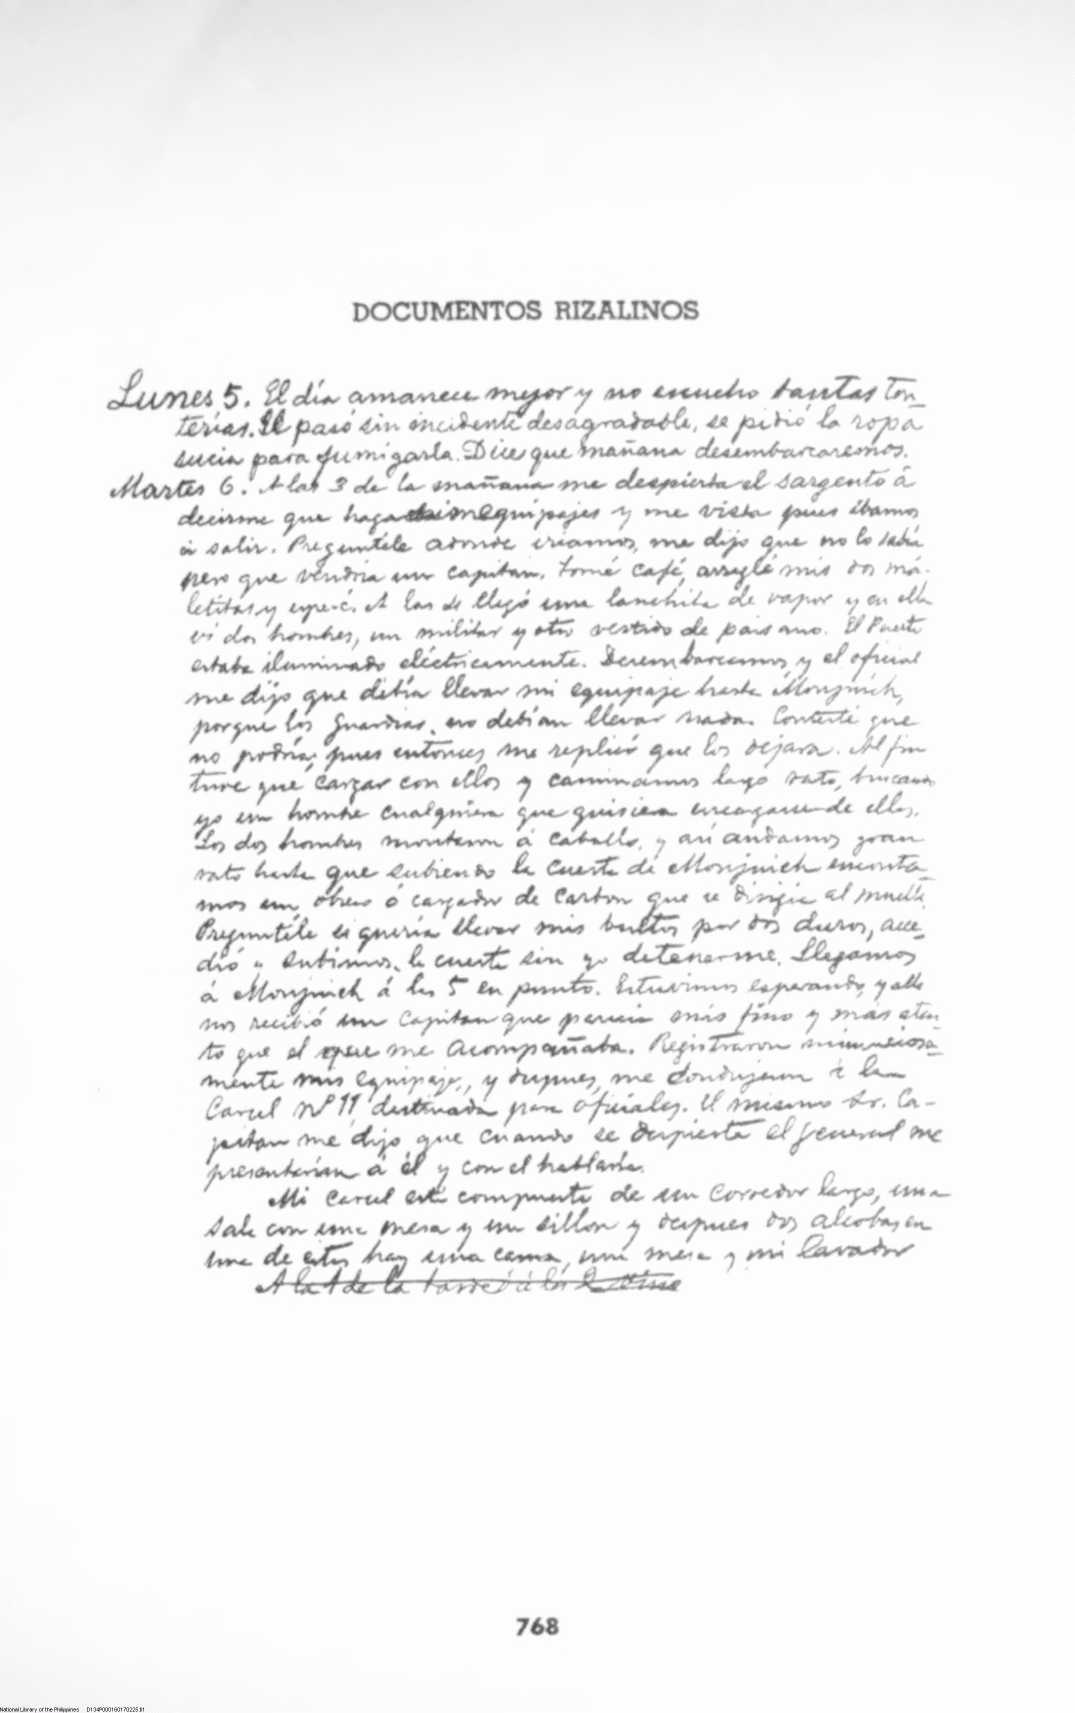 DOCUMENTOS RIZALINOS
Lunes 5. El día amanece mejor y no escucho tantas ton-
terías. El pasó sin incidente desagradable, se pidió la ropa
sucia para fumigarla. Dice que mañana desembarcaremos.
Martes 6. A las 3 de la mañana me despierta el sargento á
decirme que haga mi equipajes y me vista pues íbamos
á salir. Preguntéle adonde iríamos, me dijo que no lo sabía
pero que vendría un capitan. Tomé café, arreglé mis dos ma-
letitas y esperé. A las llegó una lanchita de vapor y en ella
ví dos hombres, un militar y otro vestido de paisano. El Puerto
estaba iluminado eléctricamente. Desembarcamos y el oficial
me dijo que debía llevar mi equipaje hasta Monjuich,
porque los guardias no debían llevar nada. Contesté que
no podría; pues entonces me replicó que los dejara. Al fin
tuve que cargar con ellos y caminamos largo rato, buscando
yo un hombre cualquiera que quisiera encargarse de ellos.
Los dos hombres montaron á caballo, y así andamos gran
rato hasta que subiendo la cuesta de Monjuich encontra-
mos un obrero ó cargador de carbon que se dirigía al muelle.
Preguntéle si quería llevar mis bultos por dos duros, acce-
dió y subimos la cuesta sin yo detenerme. Llegamos
á Monjuich á las 5 en punto. Estuvimos esperando, y allí
nos recibió un Capitan que parecía más fino y más aten-
to que el que me acompañaba. Registraron minuciosa-
mente mis equipajes, y despues, me condujeron á la
Carcel nº 11 destinada para oficiales. El mismo Sr. Ca-
pitan me dijo que cuando se despierte el general me
presentarían á él y con el hablaría.
Mi carcel está compuesta de un corredor largo, una
sala con una mesa y un sillon y despues dos alcobas, en
una de estas hay una cama, una mesa y mi lavador
A la 1 de la tarde á las 2 vino
768
National Library of the Philippines D134P000160170225.tif